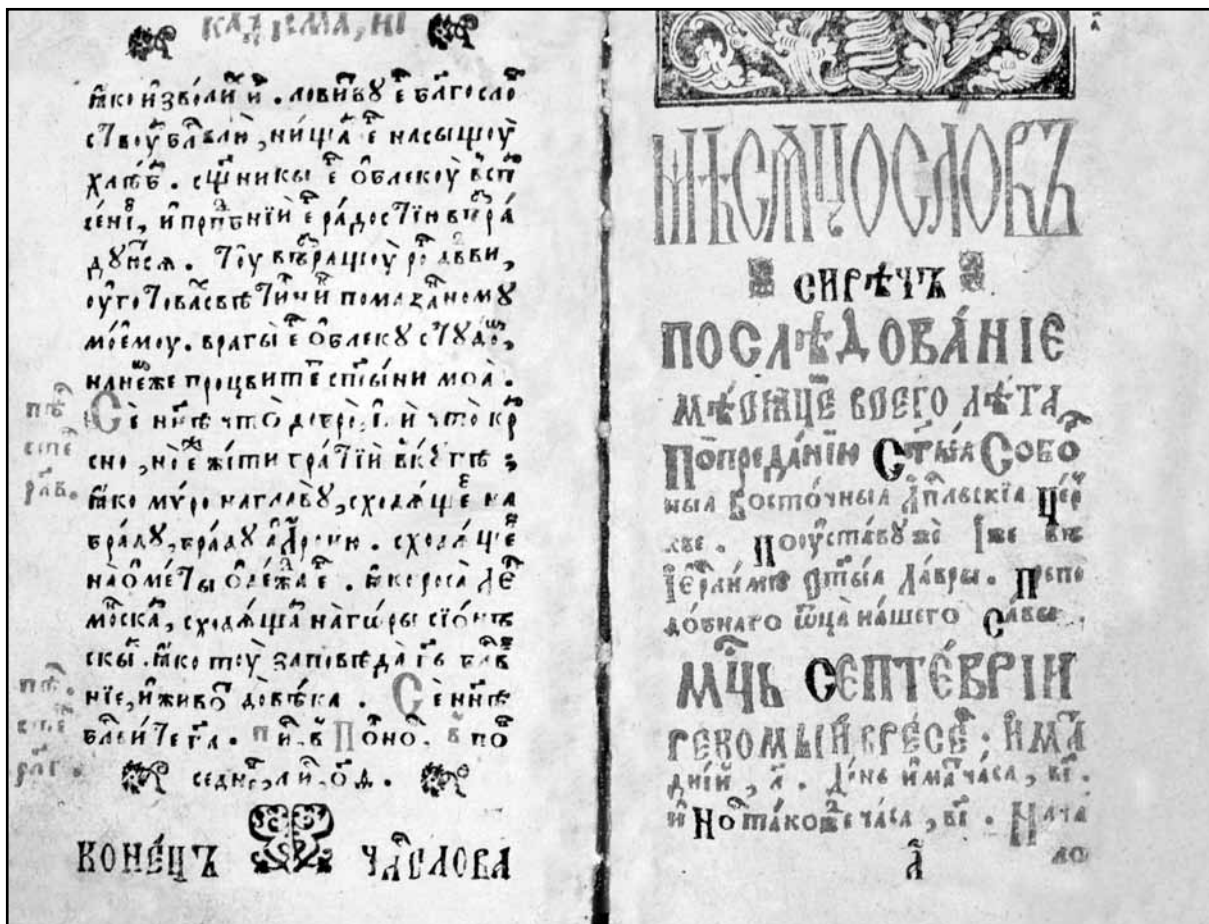 КАѲИСМА, НІ
ꙗко изволи и҆ . ловитвꙋ е҆ благосло
ствоу҆ блвлю , нищаѧ е҆ насыщоу҆
хлѣб . сщ҃нникы е҆ ѡ҆блекоу҆ въсп
сенїе , и҆ прпⷣбнїи е҆ радостїю въра
дꙋюсѧ . тоу възращоу ро дв҃ви ,
оуготовахъ свѣтилни помазанномꙋ
моемоу . врагы е҆ ѡ҆блекꙋ стꙋдоⷨ ,
нанеже процвите ст҃ыни моа .
Се ннѣ что добро , и҆ что кра
сно , но еже жити братїи вкꙋпѣ ;
ꙗко мѵро наглавꙋ , сходѧще на
брадꙋ , брадꙋ а҆аⷬоню . сходѧще
на ѡ҆меты ѡ҆дежа е҆ . ꙗко роса а҆е
моⷩска , сходѧща на горы сїѡнь
скы . ꙗко тоу заповѣда гь блв
нїе , и҆ живо до вѣка . Се ннѣ
бл҃вите гⷭа . пи . в҃ Поно . в҃ по
седне , ли , ѻ҃д .
КОНЕ́ЦЪ ЧАСЛОВА
МѢСѦЦОСЛОВЪ
СИРѢЧЪ
ПОСЛѢДОВА́НІЕ
МѢСѦЦЕ ВСЕГО ЛѢТА
По преда́нїю Ст҃ыѧ Собо
ныѧ Восто́чныѧ А҆пⷭльскїѧ Це́р
кве . По оуста́вꙋ же І҆же въ
І҆ерⷭли́мѣ Ст҃ыѧ Ла́вры . Препо
добнаго ѿц҃а на́шего Савы .
Мцⷭь СЕПТЕ́ВРІИ
РЕКОМЫЙ ВРЕСЕ ; И҆МА
дній , л҃ . Де́нь и҆ма часа , в҃і .
и҆ Но такоже часа , в҃і . Нача
а҃ ло